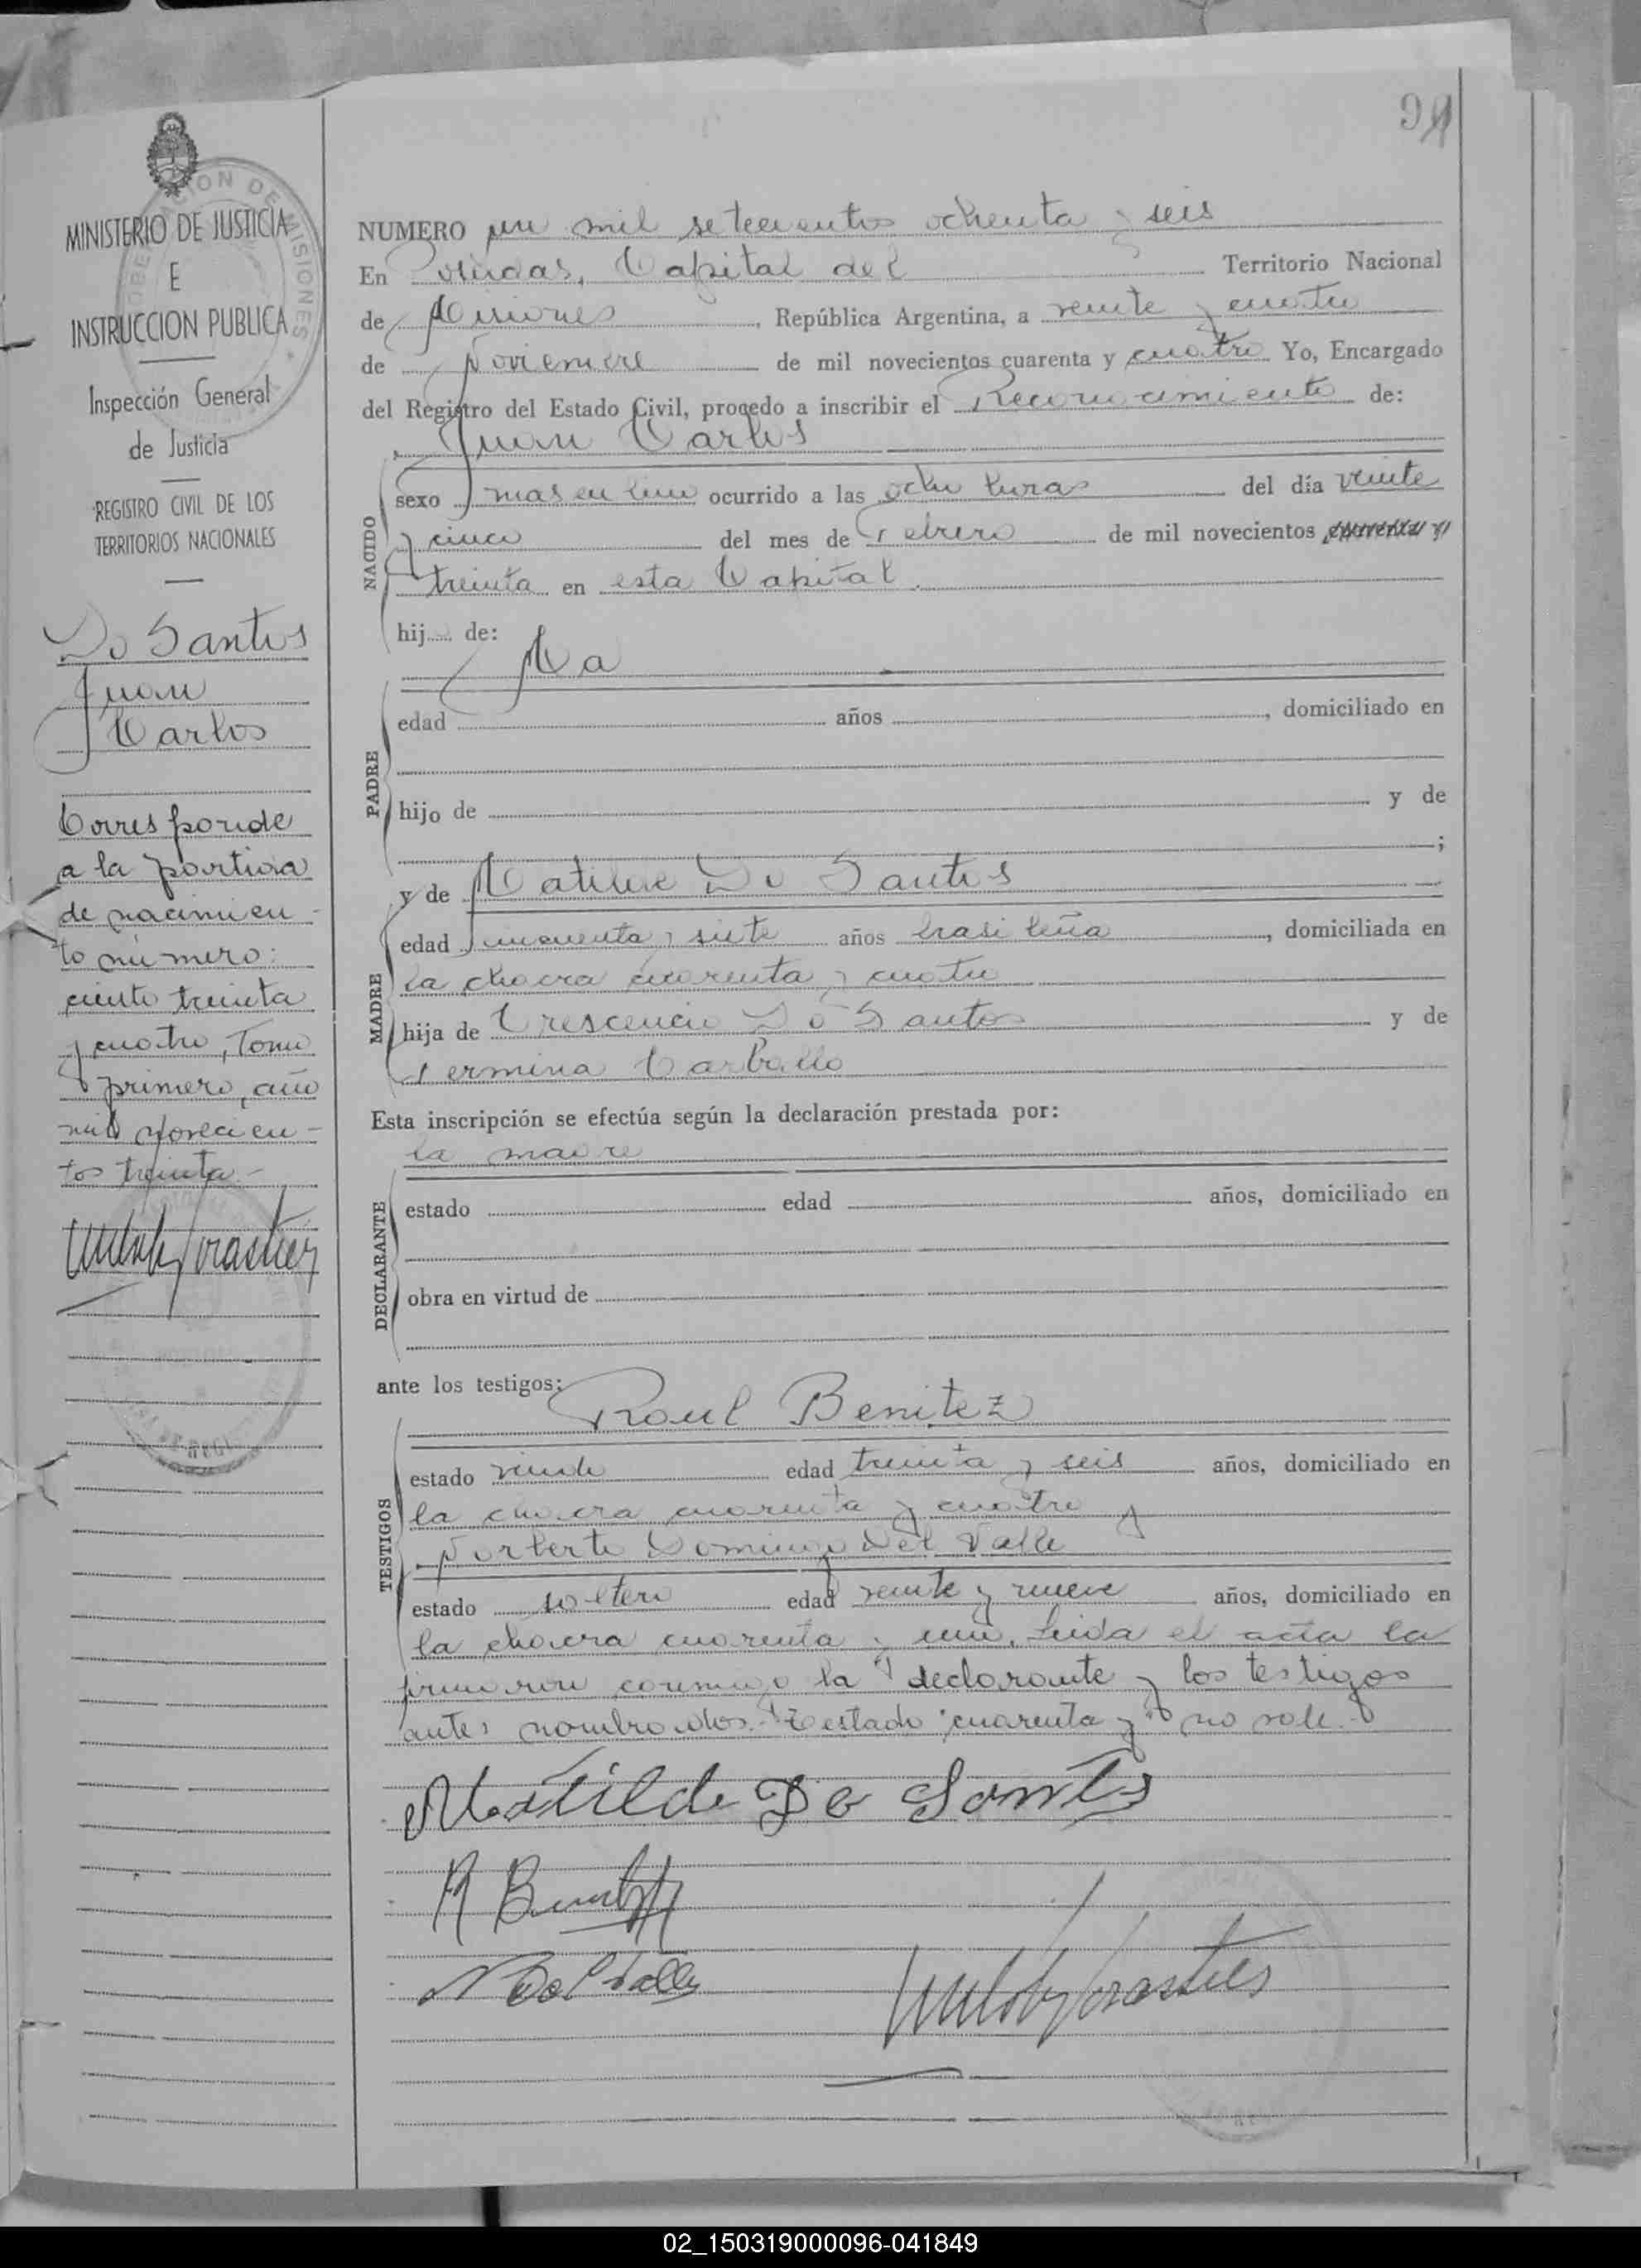 94
MINISTERIO DE JUSTICIA
E
INSTRUCCION PUBLICA
Inspección General
de Justicia
REGISTRO CIVIL DE LOS
TERRITORIOS NACIONALES
Do Santos
Juan
Carlos
Corresponde
a la partida
de nacimien-
to número:
ciento treinta
y cuatro, Tomo
primero, año
mil novecien-
tos treinta-
NUMERO un mil setecientos ochenta y seis
En Posadas, Capital del Territorio Nacional
de Misiones, República Argentina, a veinte y cuatro
de Noviembre de mil novecientos cuarenta y cuatro Yo, Encargado
del Registro del Estado Civil, procedo a inscribir el Reconocimiento de:
Juan Carlos
NACIDO
sexo masculino ocurrido a las ocho horas del día veinte
y cinco del mes de Febrero de mil novecientos cuarenta y
treinta en esta Capital.
hij de:
Ma
PADRE
edad años , domiciliado en
hijo de y de
;
y de Matilde Do Santos
MADRE
edad cincuenta y siete años brasileña, domiciliada en
la chacra cuarenta y cuatro
hija de Crescencio Do Santos y de
Fermina Carballo
Esta inscripción se efectúa según la declaración prestada por:
la madre
DECLARANTE
estado edad años, domiciliado en
obra en virtud de
ante los testigos:
Raul Benitez
TESTIGOS
estado viudo edad treinta y seis años, domiciliado en
la chacra cuarenta y cuatro y
Norberto Domingo Del Valle
estado soltero edad veinte y nueve años, domiciliado en
la chacra cuarenta y uno. Leida el acta la
firmaron conmigo la declarante y los testigos
antes nombrados.- Testado "cuarenta y" no vale.
Matilde Do Santos
R Benitez
N Del Valle
02_150319000096-041849